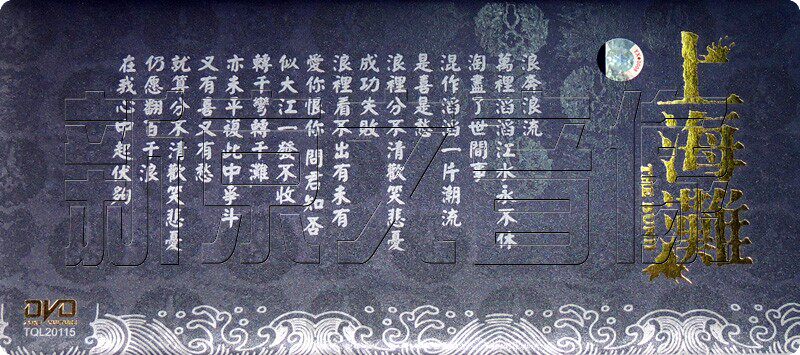 上海灘
THE BUND
浪奔浪流
萬裡滔滔江水永不休
淘盡了世間事
混作滔滔一片潮流
是喜是愁
浪裡分不清歡笑悲憂
成功失敗
浪裡看不出有未有
愛你恨你 問君知否
似大江一發不收
轉千彎轉千灘
亦未平複此中爭斗
又有喜又有愁
就算分不清歡笑悲憂
仍愿翻百千浪
在我心中起伏夠
DVD
TQL20115